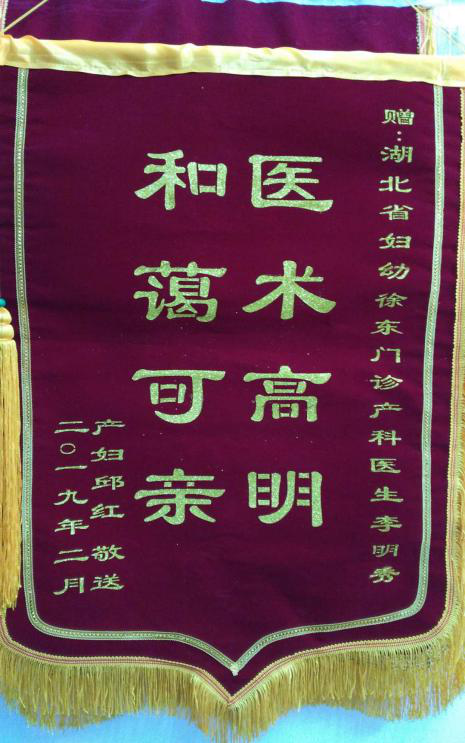 赠:湖北省妇幼徐东门诊产科医生李明秀
医术高明
和蔼可亲
产妇邱红 敬送
二〇一九年二月